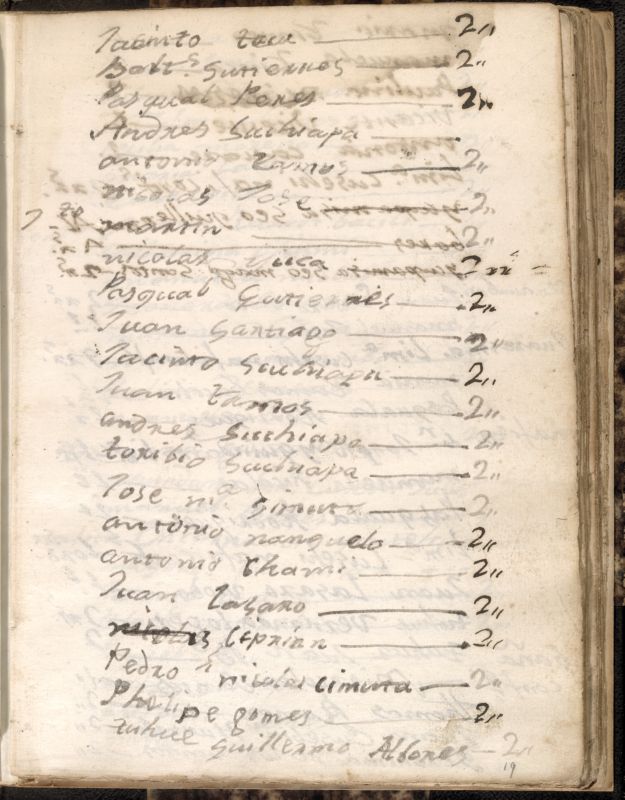 Jacinto 2„
Balt.s Gutierres 2„
Pasqual Peres 2„
Andres Suchiapa
antonio Ramos 2„
nicolas Jose 2„
martin 2„
nicolas 2„
Pasqual Gutierres 2„
Juan Santiago 2„
Jacinto Suchiapa 2„
Juan Ramos 2„
andres Suchiapa 2„
toribio Suchiapa 2„
Jose m.a Simuta 2„
antonio nanguelo 2„
antonio Chami 2„
Juan Lasaro 2„
2„
Pedro nicolas cimuta 2„
Phelipe gomes 2„
Guillermo Alfones 2„
19